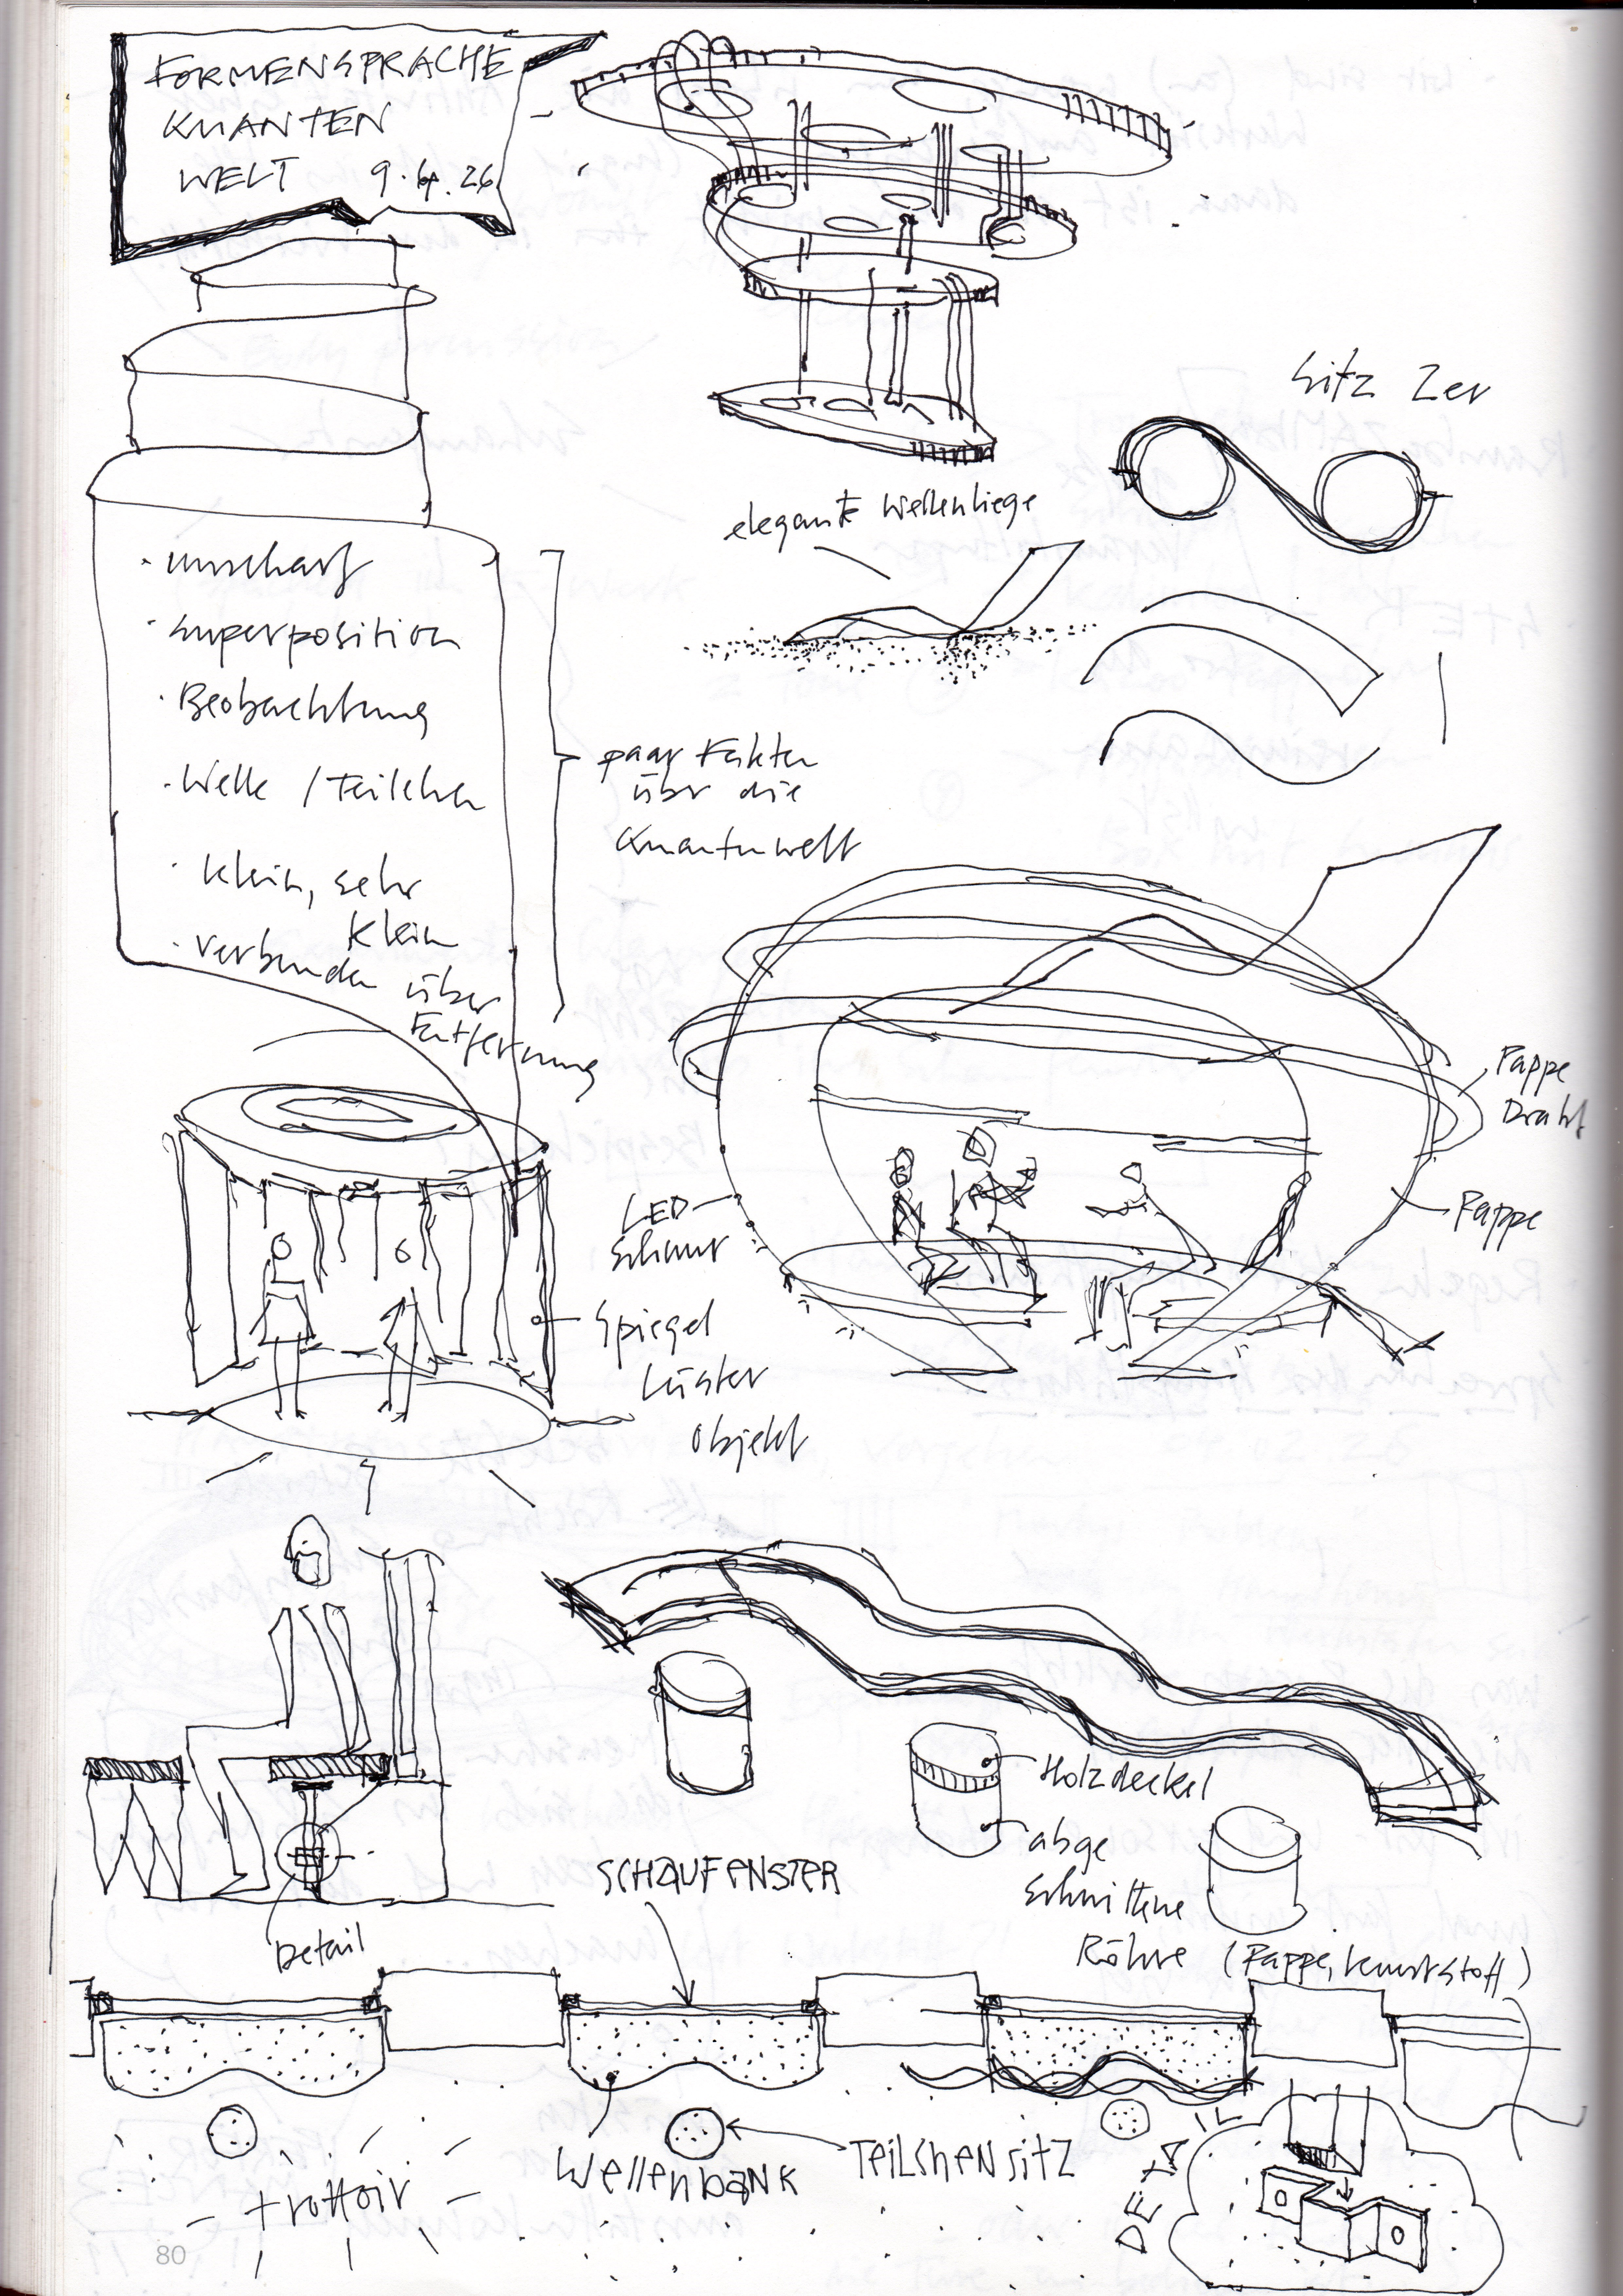 FORMENSPRACHE
QUANTEN
WELT 9.4.26
Sitz 2er
elegante Wellenliege
· unscharf
· Superposition
· Beobachtung
· Welle / Teilchen
· klein, sehr
klein
· verbunden über
Entfernung
paar Fakten
über die
Quantenwelt
Pappe
Draht
Pappe
LED-
Schnur
Spiegel
Lüster
Objekt
Holzdeckel
abge
schnittene
Röhre (Pappe, Kunststoff)
Detail
SCHAUFENSTER
Wellenbank
TEILCHENSITZ
trottoir
DETAIL
80